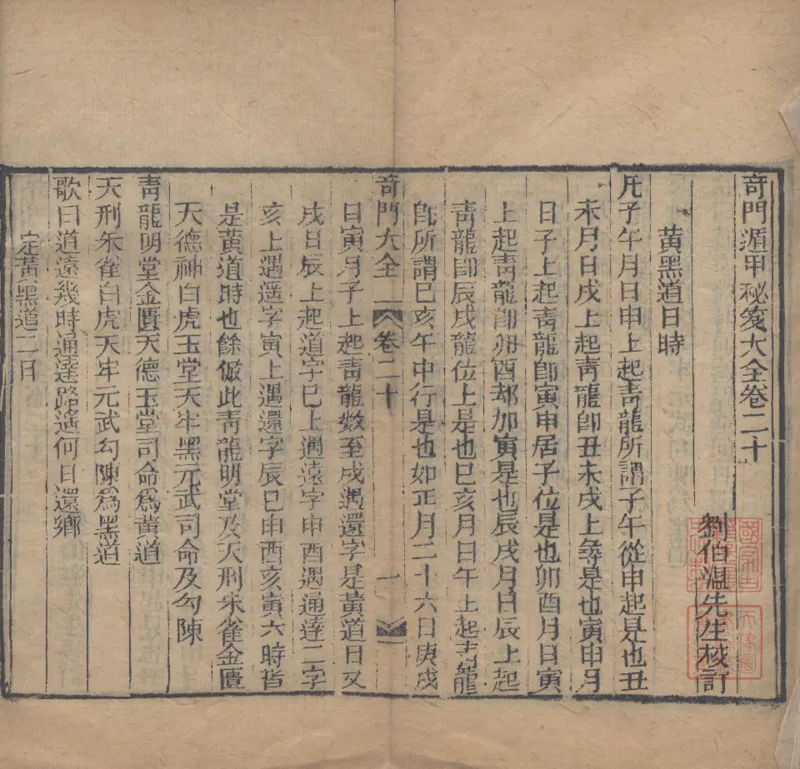 奇門遁甲秘笈大全卷二十
劉伯溫先生校訂
黃黑道日時
凡子午月日申上起青龍所謂子午從申起是也丑
未月日戌上起青龍卽丑未戌上尋是也寅申月
日子上起青龍卽寅申居子位是也卯酉月日寅
上起青龍卽卯酉却加寅是也辰戌月日辰上起
青龍卽辰戌龍位上是也巳亥月日午上起青龍
卽所謂巳亥午中行是也如正月二十六日庚戌
奇門大全 卷二十 一
日寅月子上起青龍数至戌遇還字是黃道日又
戌日辰上起道字巳上遇遠字申酉遇通達二字
亥上遇遥字寅上遇還字辰巳申酉亥寅六時皆
是黃道時也餘倣此青龍明堂及天刑朱雀金匱
天德神白虎玉堂天牢黑元武司命及勾陳
青龍明堂金匱天德玉堂司命爲黃道
天刑朱雀白虎天牢元武勾陳爲黑道
歌曰道遠幾時通達路遙何日還鄉
定黃黑道二日